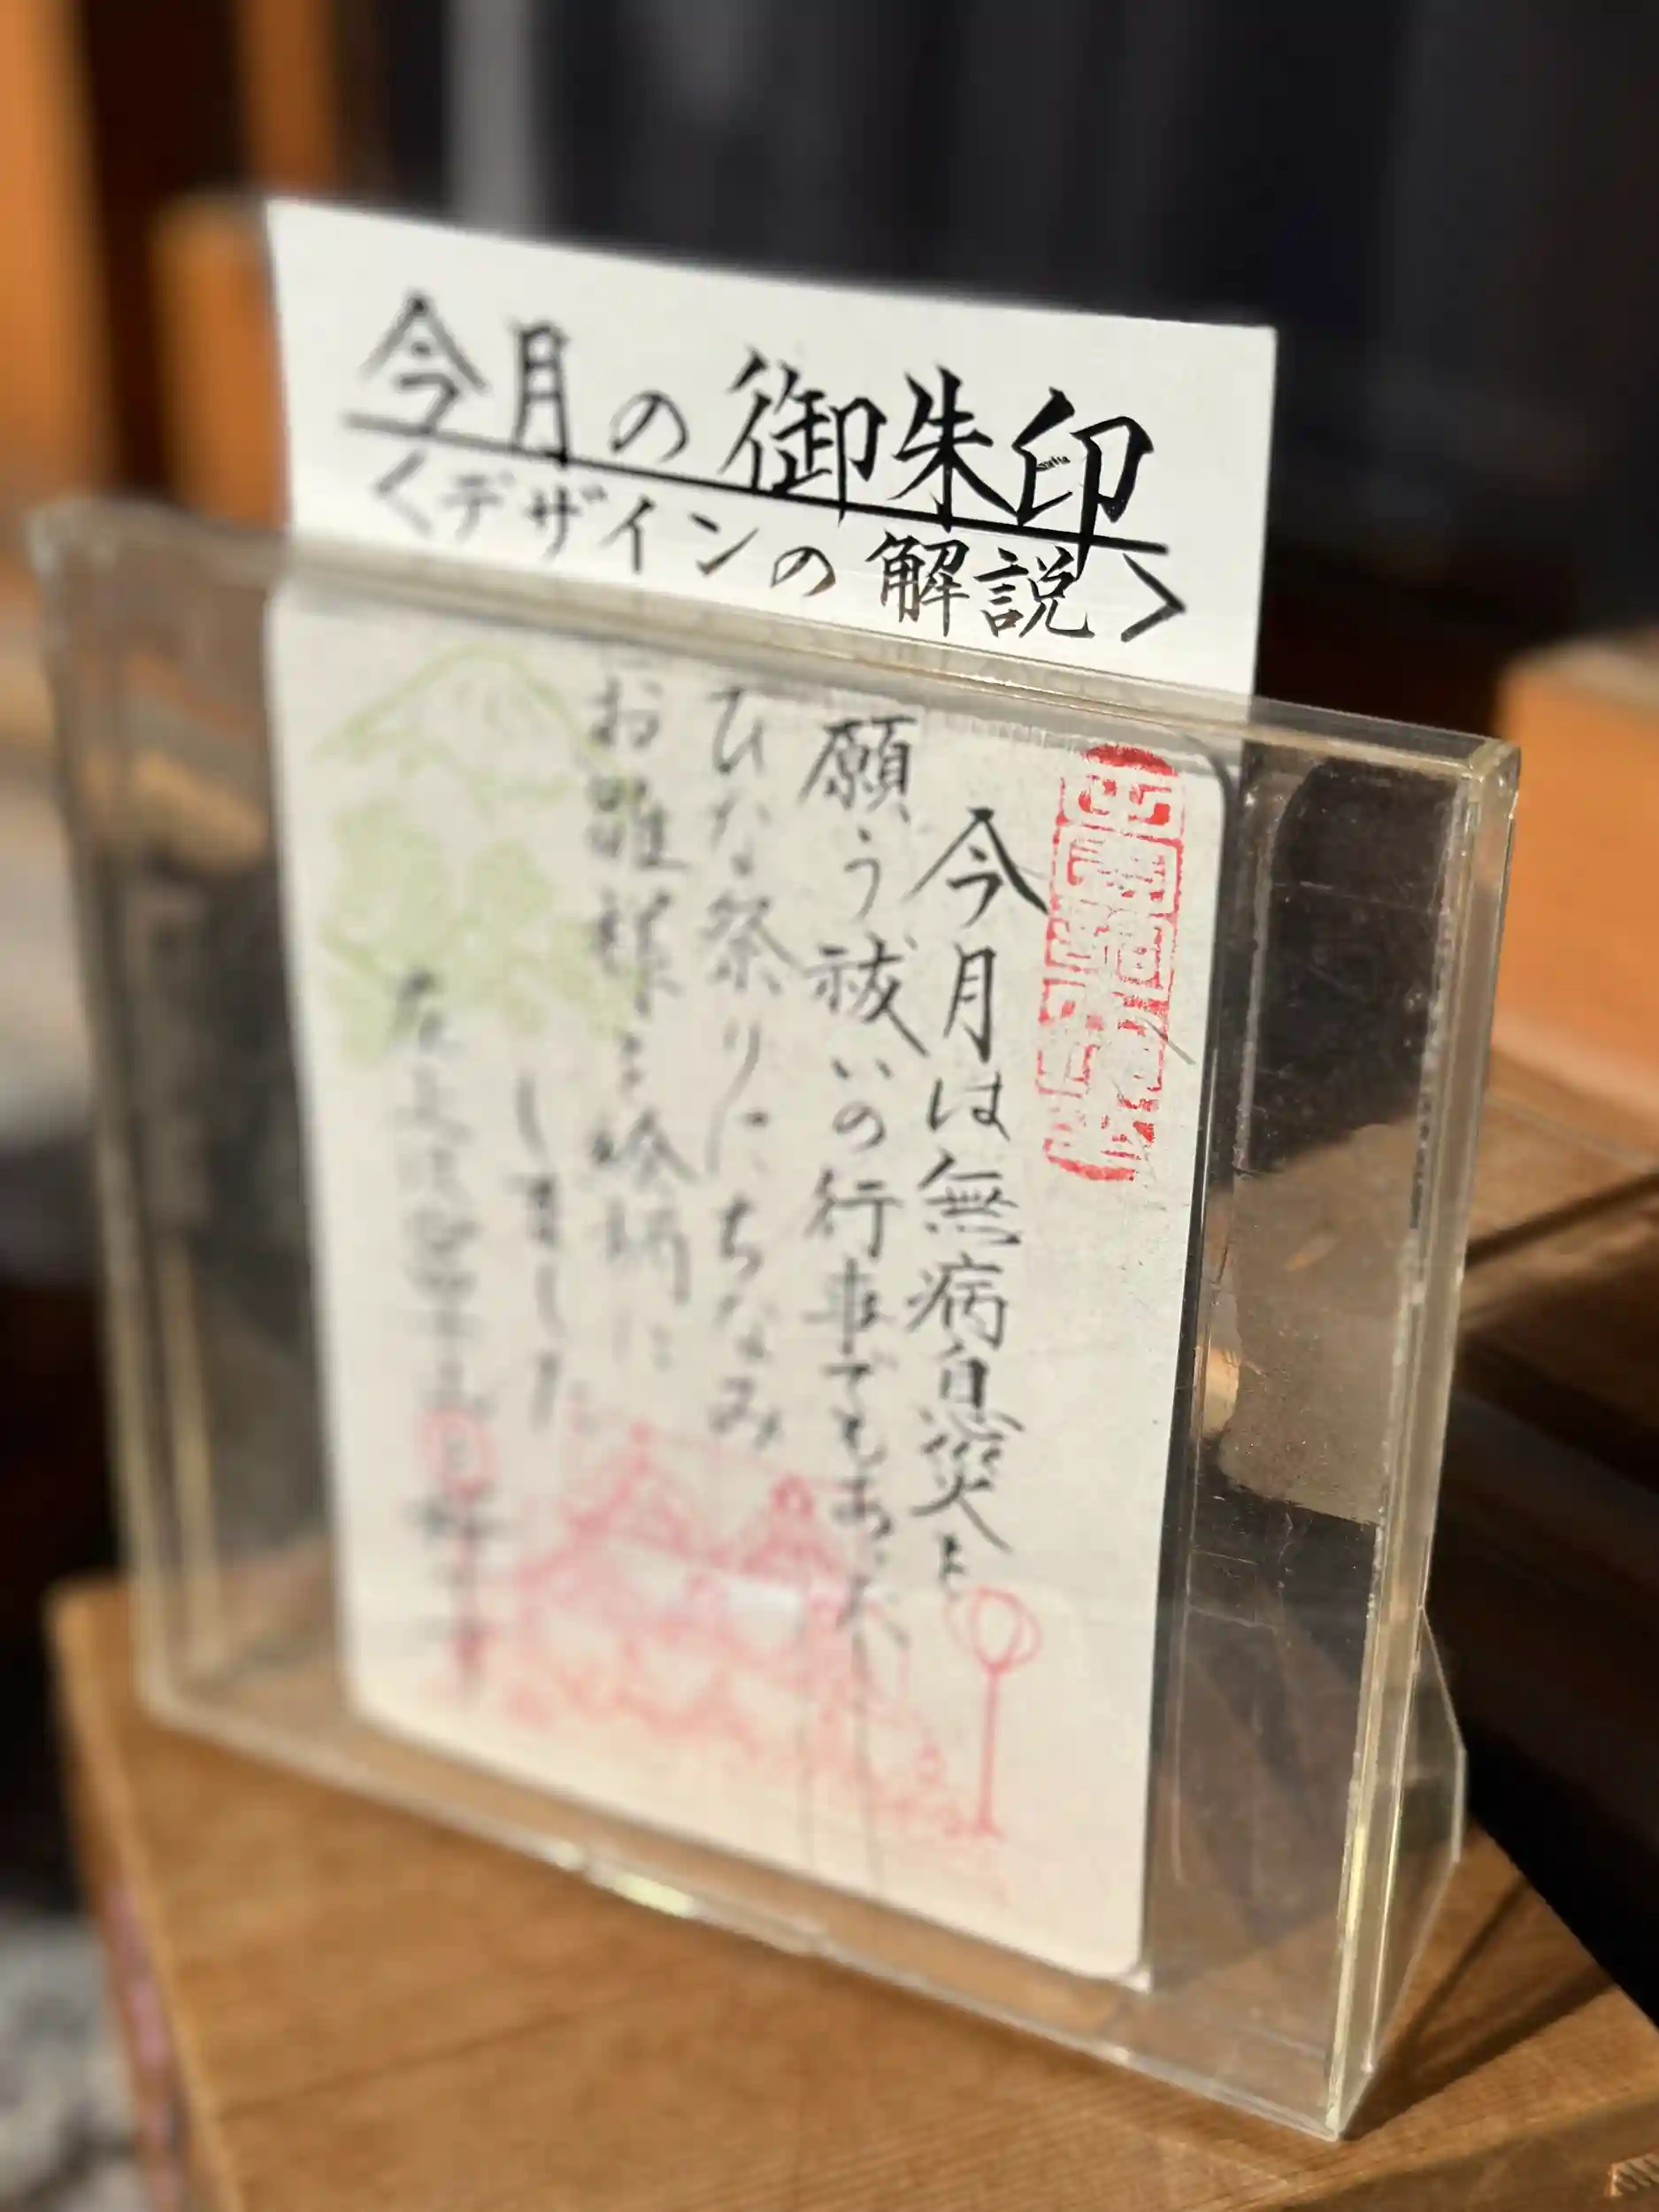 今月の御朱印
<デザインの解説>
今月は無病息災と
願う祓いの行事でもある
ひな祭りにちなみ
お雛様を絵柄に
しました